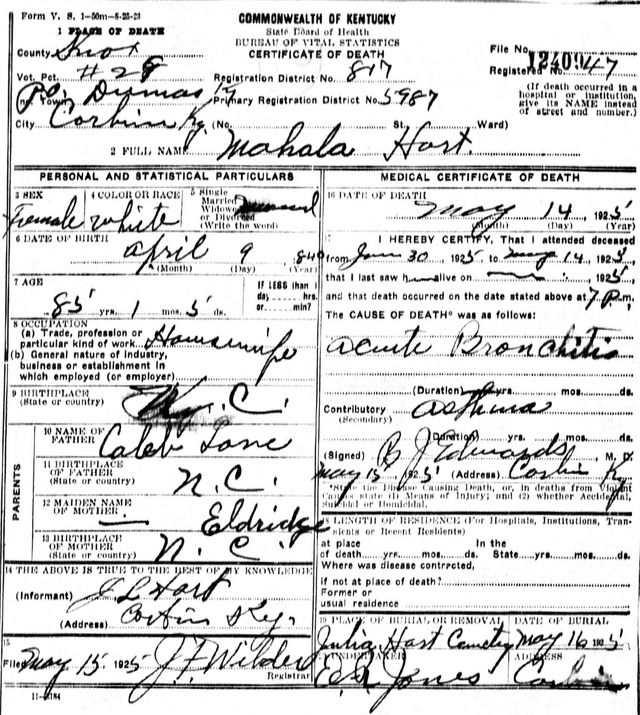 Form V. S. 1-50m-8-25-23
COMMONWEALTH OF KENTUCKY
State Board of Health
BUREAU OF VITAL STATISTICS
CERTIFICATE OF DEATH
1 PLACE OF DEATH
County Knox
File No. 12409
Registered No. 47
Vot. Pct. #28
Registration District No. 817
(If death occurred in a hospital or institution, give its NAME instead of street and number.)
Town Dumas Ky
Primary Registration District No. 5987
City Corbin Ky. (No. St., Ward)
2 FULL NAME Mahala Hart.
PERSONAL AND STATISTICAL PARTICULARS
3 SEX Female
4 COLOR OR RACE White
5 Single Married Widowed or Divorced (Write the word)
6 DATE OF BIRTH April 9, 840
(Month) (Day) (Year)
7 AGE 85 yrs. 1 mos. 5 ds.
IF LESS than 1 day hrs. or min?
8 OCCUPATION
(a) Trade, profession or particular kind of work Housewife
(b) General nature of industry, business or establishment in which employed (or employer)
9 BIRTHPLACE (State or country) C.
PARENTS
10 NAME OF FATHER Caleb
11 BIRTHPLACE OF FATHER (State or country) N. C.
12 MAIDEN NAME OF MOTHER — Eldridge
13 BIRTHPLACE OF MOTHER (State or country) N. C.
14 THE ABOVE IS TRUE TO THE BEST OF MY KNOWLEDGE
(Informant) J L Hart
(Address) Corbin Ky.
15
Filed May 15, 1925 J F Wilder
Registrar
11-3184
MEDICAL CERTIFICATE OF DEATH
16 DATE OF DEATH May 14, 1925
(Month) (Day) (Year)
17 I HEREBY CERTIFY, That I attended deceased
from 30 1925 to May 14 1925
that I last saw h alive on 1925
and that death occurred on the date stated above at 7 P.m.
The CAUSE OF DEATH* was as follows:
Acute Bronchitis
(Duration) yrs. mos. ds.
Contributory Asthma
(Secondary)
(Duration) yrs. mos. ds.
(Signed) B J Edwards, M. D.
May 15 1925 (Address) Corbin Ky
*State the Disease Causing Death, or, in deaths from Violent Causes state (1) Means of Injury; and (2) whether Accidental, Suicidal or Homicidal.
18 LENGTH OF RESIDENCE (For Hospitals, Institutions, Transients or Recent Residents)
at place of death yrs. mos. ds. In the State yrs. mos. ds.
Where was disease contracted,
if not at place of death?
Former or usual residence
19 PLACE OF BURIAL OR REMOVAL Julia Hart Cemetery
DATE OF BURIAL May 16 1925
UNDERTAKER Jones
ADDRESS Corbin